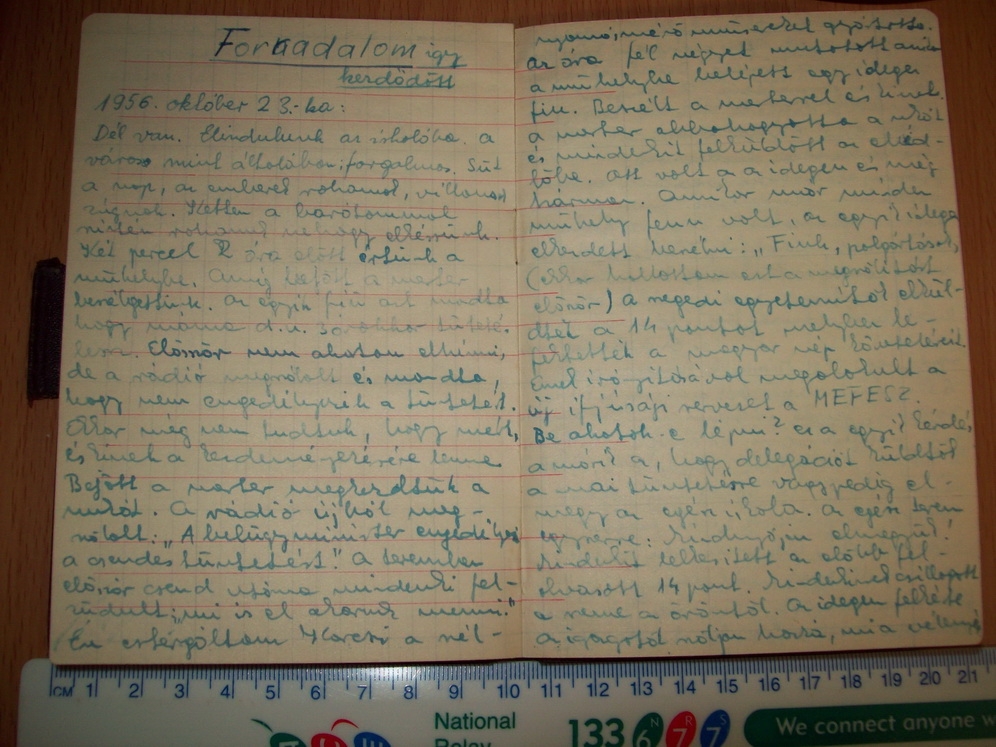 Forradalom így
kezdődött
1956. október 23.-ka:
Dél van. Elindulunk az iskolába. a
város mint általában forgalmas. Süt
a nap, az emberek rohannak, villamos
zúgnak. Ketten a barátommal
rohanunk nehogy elkéssünk.
Két percel 2 óra előtt értünk a
műhelybe. Amíg bejött a mester
beszélgettünk. az egyik fiú azt mondta
hogy mama d.u. tünteté-
lesz. Először nem akartam elhinni,
de a rádió megszólalt és mondta,
hogy nem engedélyezik a tüntetést.
Ekkor még nem tudtuk, hogy miért,
és kinek a kezdeményezésére lenne
Bejött a mester megkezdtük a
munkát. A rádió újból meg-
szólalt: „A belügyminiszter engedélyezi
a csendes tüntetést." A teremben
először csend utána mindenki fel-
zúdult; „mi is el akarunk menni."
Én esztergáltam Karcsi a nél-
nyomó, mérő műszereket gyártotta.
az óra fél négyet mutatott amikor
a műhelybe belépett egy idegen
fiú. Beszélt a mesterrel és
a mester abbahagyatta a munkát
és mindenkit felküldött az ebéd-
lőbe. ott volt a az idegen és még
hárman. Amikor már minden
műhely fenn volt, az egyik idegen
elkezdett beszélni: „Fiúk, polgártársak,
(ekkor hallottam ezt a megszólítást
először) a szegedi egyetemiektől elkül-
dték a 14 pontot melyben le-
fektették a magyar nép követeléseit.
Ennek írásával megalakult a
új ifjúsági szervezet a MEFESZ.
Be akartok e lépni? ez a egyik kérdés,
a másik a, hogy delegációt küldtök
a mai tüntetésre vagy pedig el-
megy az egész iskola. A egész terem
egyszerre: Mindnyájan elmegyünk!
Mindenkit lelkesített az előbb fel-
olvasott 14 pont. Mindenkinek csillogott
a szeme az örömtől. Az idegen felkérte
a igazgatót szóljon hozzá, mi a véleménye
CM 1 2 3 4 5 6 7 8 9 10 11 12 13 14 15 16 17 18 19 20 21
National
Relay
133 6 7 7
N R S
We connect anyone w